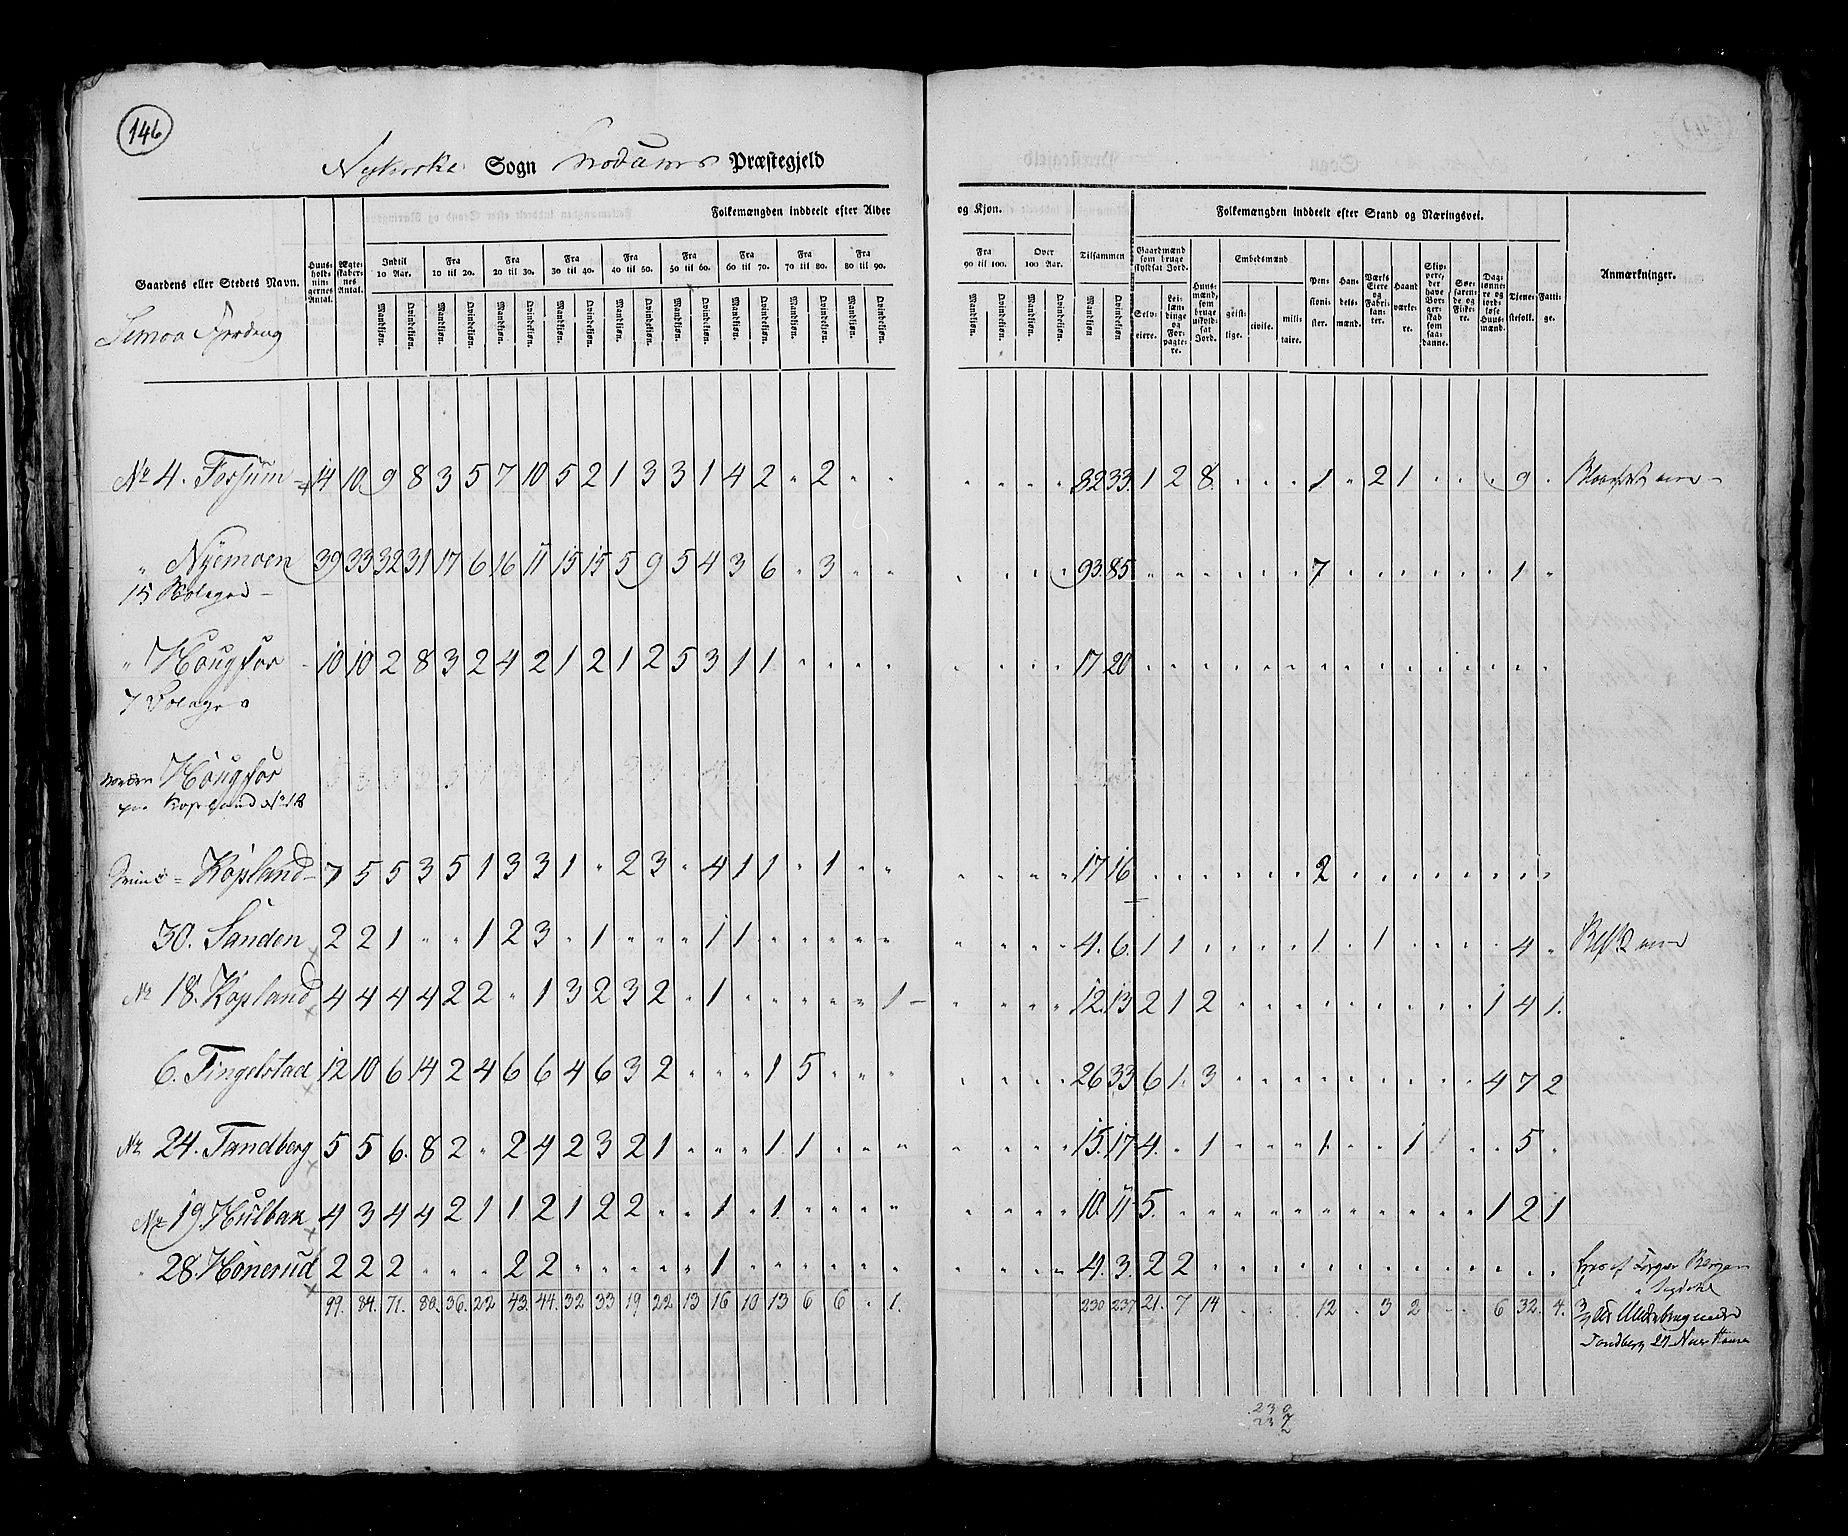 146
Nykirke Sogn Modums Præstegjeld
Folkemængden inddeelt efter Alder og Kjøn. Folkemængden inddeelt efter Stand og Næringsvei.
Gaardens eller Stedets Navn. Huus-holdnin-gernes Antal. Ægte-skaber-nes Antal. Indtil 10 Aar. Fra 10 til 20. Fra 20 til 30. Fra 30 til 40. Fra 40 til 50. Fra 50 til 60. Fra 60 til 70. Fra 70 til 80. Fra 80 til 90. Fra 90 til 100. Over 100 Aar. Tilsammen Gaardmænd som bruge skyldsat Jord. Huus-mænd, som bruge uskyldsat Jord. Embedsmænd Pen-sionister. Han-dels-mænd. Værks Eiere og Fabri-kanter. Haand-værke-re. Skip-pere, der have Bor-ger-skab som saa-danne. Søe-faren-de og Fiske-re. Dag-lønne-re og jord-løse Huus-mænd. Tjene-stefolk. Fatti-ge. Anmærkninger.
Mandkjøn. Qvindekjøn. Mandkjøn. Qvindekjøn. Mandkjøn. Qvindekjøn. Mandkjøn. Qvindekjøn. Mandkjøn. Qvindekjøn. Mandkjøn. Qvindekjøn. Mandkjøn. Qvindekjøn. Mandkjøn. Qvindekjøn. Mandkjøn. Qvindekjøn. Mandkjøn. Qvindekjøn. Mandkjøn. Qvindekjøn. Mandkjøn Qvindekjøn Selv-eiere. Lei-læn-dinge og For-pagte-re. geist-lige. civile. mili-taire.
Simoa Fjerding
No 4. Fossum 14 10 9 8 3 5 7 10 5 2 1 3 3 1 4 2 " 2 " " " " " " 32 33 1 2 8 " " " 1 " 2 1 " " " 9 "
" Nyemoen 39 33 32 31 17 6 16 11 15 15 5 9 5 4 3 6 " 3 " " " " " " 93. 85 " " " " " " 7 " " " " " " 1 "
15
" Hougfos 10 10 2 8 3 2 4 2 1 2 1 2 5 3 1 1 " " " " " " " " 17 20 " " " " " " " " " " " " " " "
7
Hougfos
Kopland No 18
Kopland 7 5 5 3 5 1 3 3 1 " 2 3 " 4 1 1 " 1 " " " " " " 17 16 " " " " " " 2 " " " " " " " "
30. Sanden 2 2 1 " " 1 2 3 " 1 " " " 1 1 " " " " " " " " " 4. 6. 1 1 " " " " 1. " 1 " " " " 4 "
No 18. Kopland 4 4 4 4 2 2 " 1 3 2 3 2 " 1 " " " " " 1 " " " " 12. 13 2 1 2 " " " " " " " " " 1 4 1.
6. Tingelstad 12 10 6 14 2 4 6 6 4 6 3 2 " " " 1 5 " " " " " " " 26 33 6 1. 3 " " " " " " " " " 4 7 2
No 24. Tandberg 5 5 6. 8 2 " 2 4 2 3 2 1 " " " 1 1 " " " " " " " 15. 17 4. " 1 " " " 1. " " 1 " " " 5 "
No 19. Hulbak 4 3 4 4 2 1 1 2 1 2 2 " " 1 " 1. " " " " " " " " 10. 11 5. " " " " " " " " " " " 1 2 1
" 28. Hønerud 2 2 2 " " " 2 2 " " " " " 1 " " " " " " " " " " 4. 3. 2 2 " " " " " " " " " " " " "
99. 84. 71. 80. 36. 22 43. 44. 32 33 19. 22. 13 16 10 13 6 6 " 1. 230 237 21. 7 14 12 " 3 2 6 32. 4.
230
237